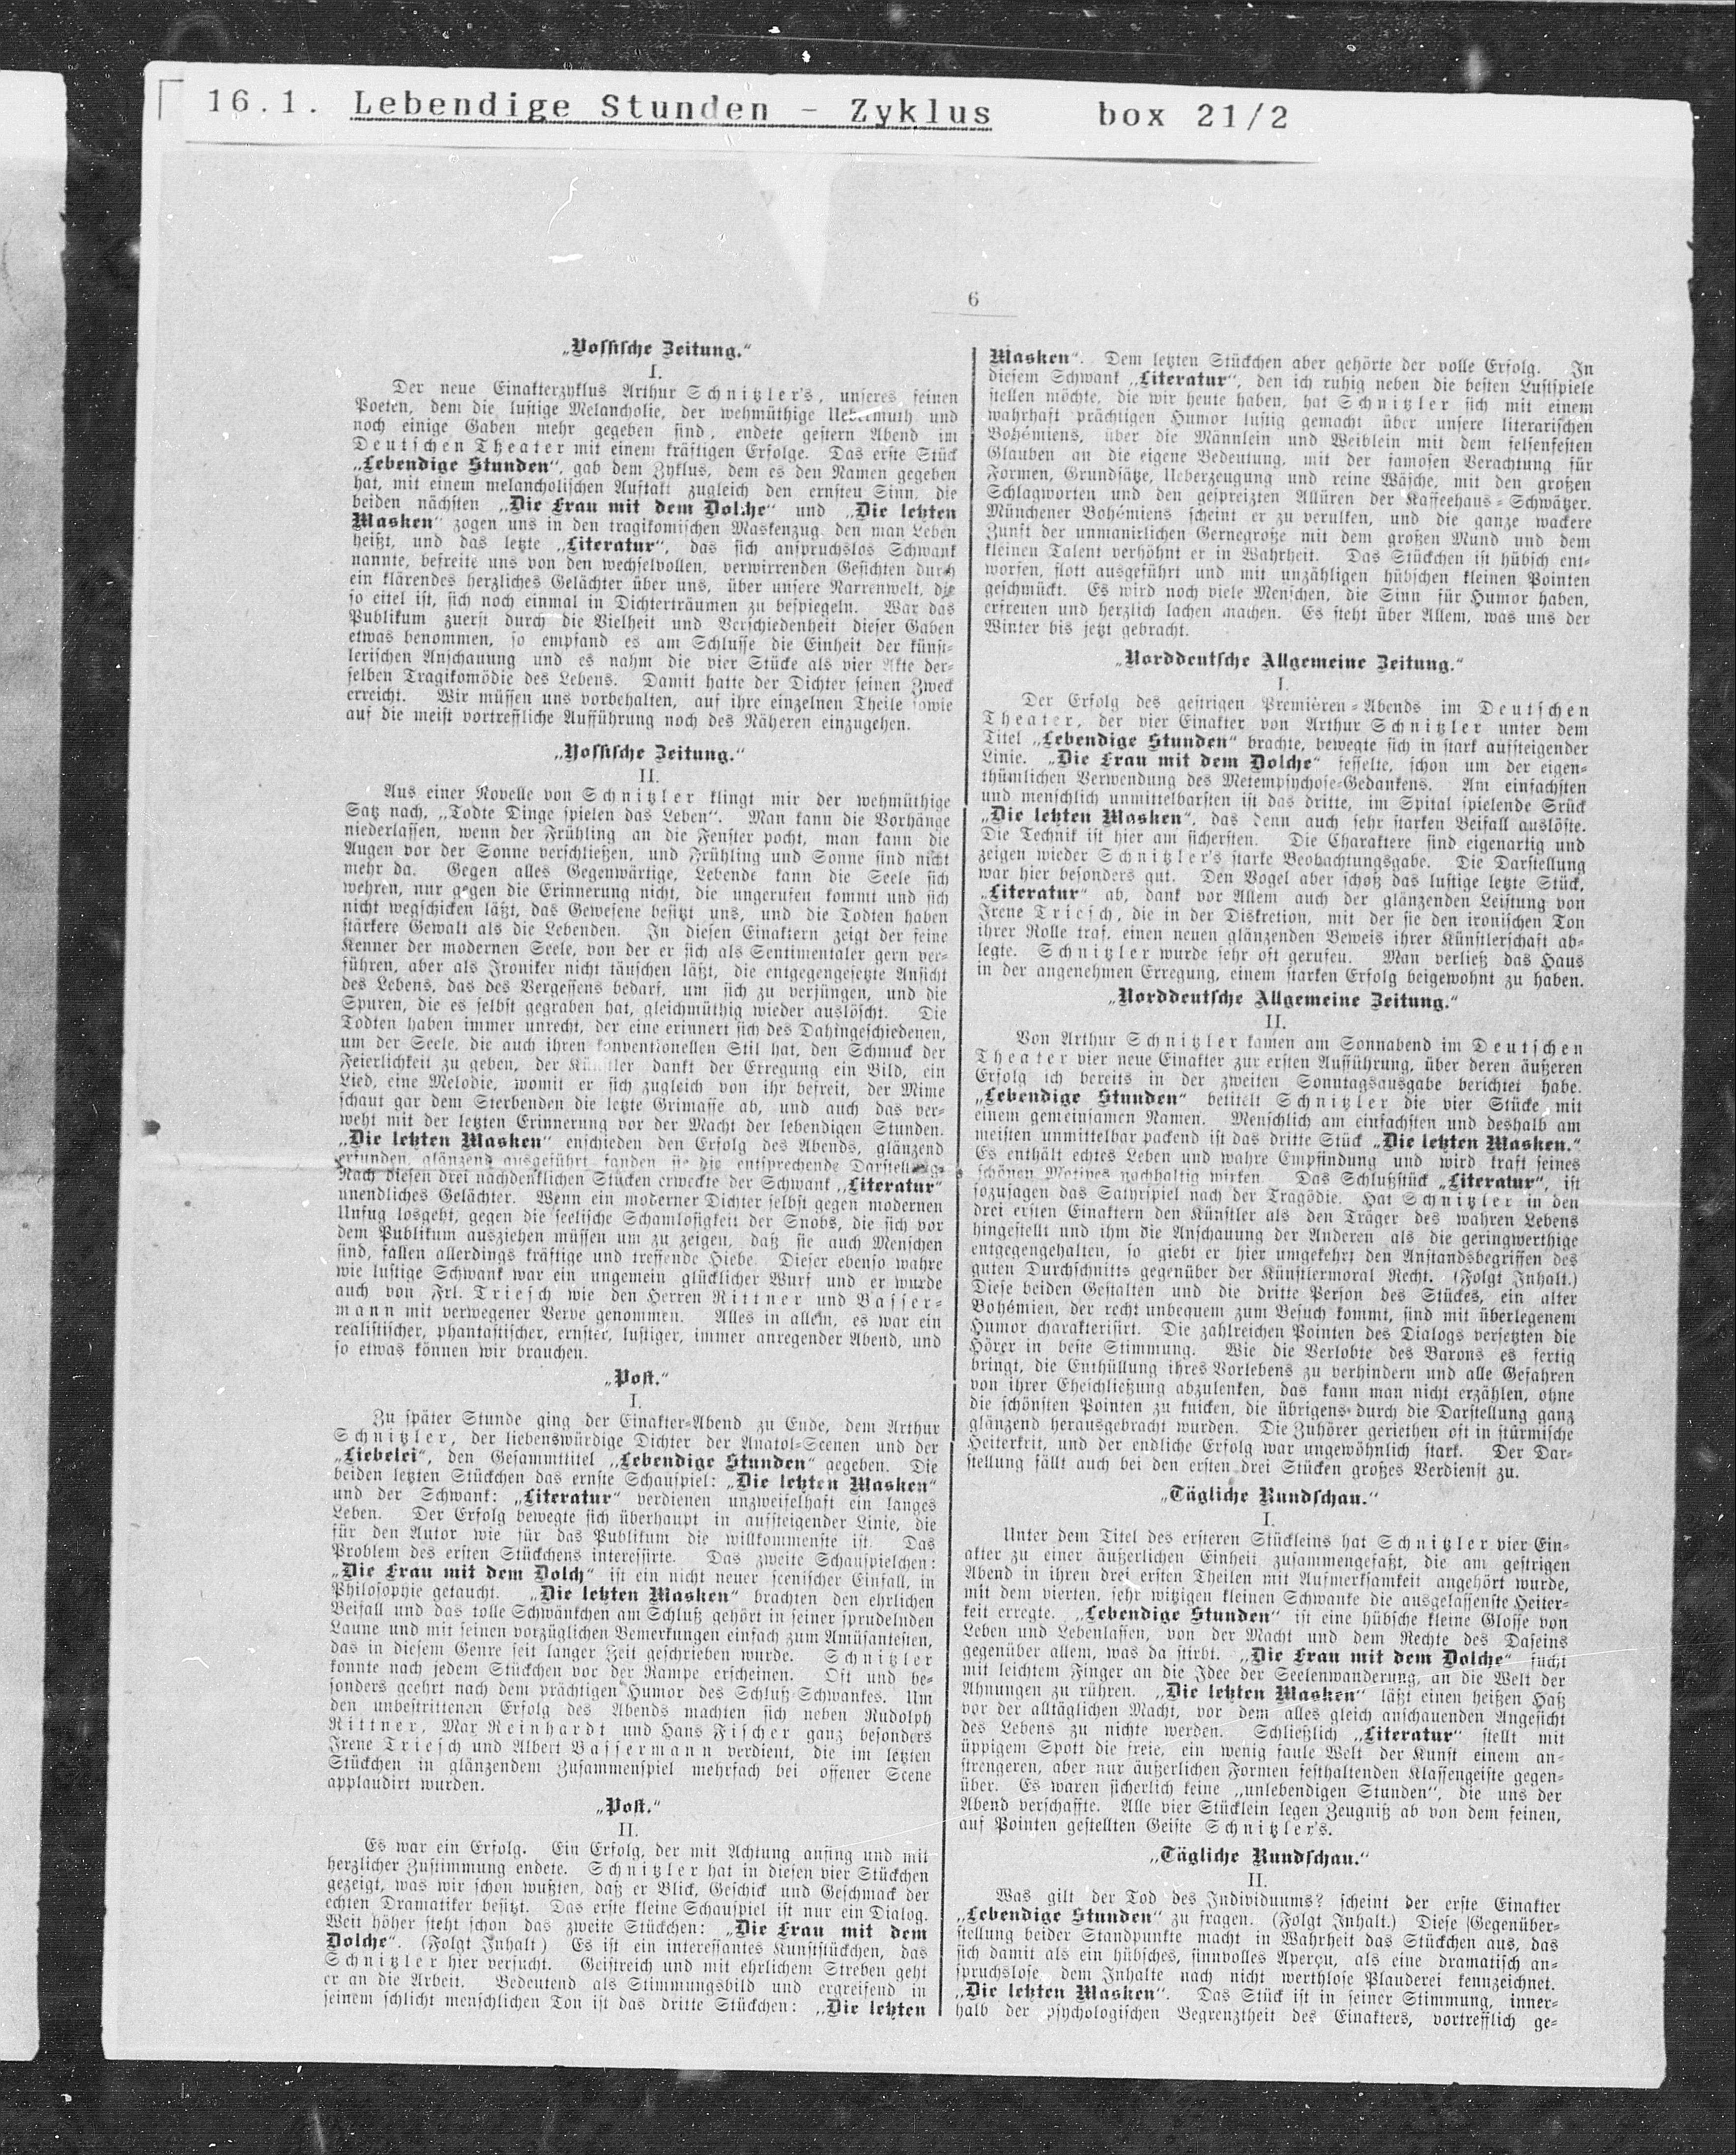 16.1. Lebendige Stunden - Zyklus box 21/2
6
„Vossische Zeitung.“
I.
Der neue Einakterzyklus Arthur Schnitzler's, unseres feinen
Poeten, dem die lustige Melancholie, der wehmüthige Uebermuth und
noch einige Gaben mehr gegeben sind, endete gestern Abend im
Deutschen Theater mit einem kräftigen Erfolge. Das erste Stück
„Lebendige Stunden“, gab dem Zyklus, dem es den Namen gegeben
hat, mit einem melancholischen Auftakt zugleich den ernsten Sinn, die
beiden nächsten „Die Frau mit dem Dolche“ und „Die letzten
Masken“ zogen uns in den tragikomischen Maskenzug, den man Leben
heißt, und das letzte „Literatur“, das sich anspruchslos Schwank
nannte, befreite uns von den wechselvollen, verwirrenden Gesichten durch
ein klärendes herzliches Gelächter über uns, über unsere Narrenwelt, die
so eitel ist, sich noch einmal in Dichterträumen zu bespiegeln. War das
Publikum zuerst durch die Vielheit und Verschiedenheit dieser Gaben
etwas benommen, so empfand es am Schlusse die Einheit der künst-
lerischen Anschauung und es nahm die vier Stücke als vier Akte der-
selben Tragikomödie des Lebens. Damit hatte der Dichter seinen Zweck
erreicht. Wir müssen uns vorbehalten, auf ihre einzelnen Theile sowie
auf die meist vortreffliche Aufführung noch des Näheren einzugehen.
„Vossische Zeitung.“
II.
Aus einer Novelle von Schnitzler klingt mir der wehmüthige
Satz nach, „Todte Dinge spielen das Leben“. Man kann die Vorhänge
niederlassen, wenn der Frühling an die Fenster pocht, man kann die
Augen vor der Sonne verschließen, und Frühling und Sonne sind nicht
mehr da. Gegen alles Gegenwärtige, Lebende kann die Seele sich
wehren, nur gegen die Erinnerung nicht, die ungerufen kommt und sich
nicht wegschicken läßt, das Gewesene besitzt uns, und die Todten haben
stärkere Gewalt als die Lebenden. In diesen Einaktern zeigt der feine
Kenner der modernen Seele, von der er sich als Sentimentaler gern ver-
führen, aber als Ironiker nicht täuschen läßt, die entgegengesetzte Ansicht
des Lebens, das des Vergessens bedarf, um sich zu verjüngen, und die
Spuren, die es selbst gegraben hat, gleichmüthig wieder auslöscht. Die
Todten haben immer unrecht, der eine erinnert sich des Dahingeschiedenen,
um der Seele, die auch ihren konventionellen Stil hat, den Schmuck der
Feierlichkeit zu geben, der Künstler dankt der Erregung ein Bild, ein
Lied, eine Melodie, womit er sich zugleich von ihr befreit, der Mime
schaut gar dem Sterbenden die letzte Grimasse ab, und auch das ver-
weht mit der letzten Erinnerung vor der Macht der lebendigen Stunden.
„Die letzten Masken“ enschieden den Erfolg des Abends, glänzend
erfunden, glänzend ausgeführt fanden sie die entsprechende Darstellung.
Nach diesen drei nachdenklichen Stücken erweckte der Schwank „Literatur“
unendliches Gelächter. Wenn ein moderner Dichter selbst gegen modernen
Unfug losgeht, gegen die seelische Schamlosigkeit der Snobs, die sich vor
dem Publikum ausziehen müssen um zu zeigen, daß sie auch Menschen
sind, fallen allerdings kräftige und treffende Hiebe. Dieser ebenso wahre
wie lustige Schwank war ein ungemein glücklicher Wurf und er wurde
auch von Frl. Triesch wie den Herren Rittner und Basser-
mann mit verwegener Verve genommen. Alles in allem, es war ein
realistischer, phantastischer, ernster, lustiger, immer anregender Abend, und
so etwas können wir brauchen.
„Post.“
I.
Zu später Stunde ging der Einakter-Abend zu Ende, dem Arthur
Schnitzler, der liebenswürdige Dichter der Anatol-Scenen und der
„Liebelei“, den Gesammttitel „Lebendige Stunden“ gegeben. Die
beiden letzten Stückchen das ernste Schauspiel: „Die letzten Masken“
und der Schwank: „Literatur“ verdienen unzweifelhaft ein langes
Leben. Der Erfolg bewegte sich überhaupt in aufsteigender Linie, die
für den Autor wie für das Publikum die willkommenste ist. Das
Problem des ersten Stückchens interessirte. Das zweite Schauspielchen:
„Die Frau mit dem Dolch“ ist ein nicht neuer scenischer Einfall, in
Philosophie getaucht. „Die letzten Masken“ brachten den ehrlichen
Beifall und das tolle Schwänkchen am Schluß gehört in seiner sprudelnden
Laune und mit seinen vorzüglichen Bemerkungen einfach zum Amüsantesten,
das in diesem Genre seit langer Zeit geschrieben wurde. Schnitzler
konnte nach jedem Stückchen vor der Rampe erscheinen. Oft und be-
sonders geehrt nach dem prächtigen Humor des Schluß-Schwankes. Um
den unbestrittenen Erfolg des Abends machten sich neben Rudolph
Rittner, Max Reinhardt und Hans Fischer ganz besonders
Irene Triesch und Albert Bassermann verdient, die im letzten
Stückchen in glänzendem Zusammenspiel mehrfach bei offener Scene
applaudirt wurden.
„Post.“
II.
Es war ein Erfolg. Ein Erfolg, der mit Achtung anfing und mit
herzlicher Zustimmung endete. Schnitzler hat in diesen vier Stückchen
gezeigt, was wir schon wußten, daß er Blick, Geschick und Geschmack der
echten Dramatiker besitzt. Das erste kleine Schauspiel ist nur ein Dialog.
Weit höher steht schon das zweite Stückchen: „Die Frau mit dem
Dolche“. (Folgt Inhalt) Es ist ein interessantes Kunststückchen, das
Schnitzler hier versucht. Geistreich und mit ehrlichem Streben geht
er an die Arbeit. Bedeutend als Stimmungsbild und ergreifend in
seinem schlicht menschlichen Ton ist das dritte Stückchen: „Die letzten
Masken“. Dem letzten Stückchen aber gehörte der volle Erfolg. In
diesem Schwank „Literatur“, den ich ruhig neben die besten Lustspiele
stellen möchte, die wir heute haben, hat Schnitzler sich mit einem
wahrhaft prächtigen Humor lustig gemacht über unsere literarischen
Bohémiens, über die Männlein und Weiblein mit dem felsenfesten
Glauben an die eigene Bedeutung, mit der famosen Verachtung für
Formen, Grundsätze, Ueberzeugung und reine Wäsche, mit den großen
Schlagworten und den gespreizten Allüren der Kaffeehaus-Schwätzer.
Münchener Bohémiens scheint er zu verulken, und die ganze wackere
Zunft der unmanirlichen Gernegroße mit dem großen Mund und dem
kleinen Talent verhöhnt er in Wahrheit. Das Stückchen ist hübsch ent-
worfen, flott ausgeführt und mit unzähligen hübschen kleinen Pointen
geschmückt. Es wird noch viele Menschen, die Sinn für Humor haben,
erfreuen und herzlich lachen machen. Es steht über Allem, was uns der
Winter bis jetzt gebracht.
„Norddeutsche Allgemeine Zeitung.“
I.
Der Erfolg des gestrigen Premièren-Abends im Deutschen
Theater, der vier Einakter von Arthur Schnitzler unter dem
Titel „Lebendige Stunden“ brachte, bewegte sich in stark aufsteigender
Linie. „Die Frau mit dem Dolche“ fesselte, schon um der eigen-
thümlichen Verwendung des Metempsychose-Gedankens. Am einfachsten
und menschlich unmittelbarsten ist das dritte, im Spital spielende Stück
„Die letzten Masken“, das denn auch sehr starken Beifall auslöste.
Die Technik ist hier am sichersten. Die Charaktere sind eigenartig und
zeigen wieder Schnitzler's starke Beobachtungsgabe. Die Darstellung
war hier besonders gut. Den Vogel aber schoß das lustige letzte Stück,
„Literatur“ ab, dank vor Allem auch der glänzenden Leistung von
Irene Triesch, die in der Diskretion, mit der sie den ironischen Ton
ihrer Rolle traf, einen neuen glänzenden Beweis ihrer Künstlerschaft ab-
legte. Schnitzler wurde sehr oft gerufen. Man verließ das Haus
in der angenehmen Erregung, einem starken Erfolg beigewohnt zu haben.
„Norddeutsche Allgemeine Zeitung.“
II.
Von Arthur Schnitzler kamen am Sonnabend im Deutschen
Theater vier neue Einakter zur ersten Aufführung, über deren äußeren
Erfolg ich bereits in der zweiten Sonntagsausgabe berichtet habe.
„Lebendige Stunden“ betitelt Schnitzler die vier Stücke mit
einem gemeinsamen Namen. Menschlich am einfachsten und deshalb am
meisten unmittelbar packend ist das dritte Stück „Die letzten Masken.“
Es enthält echtes Leben und wahre Empfindung und wird kraft seines
schönen Motives nachhaltig wirken. Das Schlußstück „Literatur“, ist
sozusagen das Satyrspiel nach der Tragödie. Hat Schnitzler in den
drei ersten Einaktern den Künstler als den Träger des wahren Lebens
hingestellt und ihm die Anschauung der Anderen als die geringwerthige
entgegengehalten, so giebt er hier umgekehrt den Anstandsbegriffen des
guten Durchschnitts gegenüber der Künstlermoral Recht. (Folgt Inhalt.)
Diese beiden Gestalten und die dritte Person des Stückes, ein alter
Bohémien, der recht unbequem zum Besuch kommt, sind mit überlegenem
Humor charakterisirt. Die zahlreichen Pointen des Dialogs versetzten die
Hörer in beste Stimmung. Wie die Verlobte des Barons es fertig
bringt, die Enthüllung ihres Vorlebens zu verhindern und alle Gefahren
von ihrer Eheschließung abzulenken, das kann man nicht erzählen, ohne
die schönsten Pointen zu knicken, die übrigens durch die Darstellung ganz
glänzend herausgebracht wurden. Die Zuhörer geriethen oft in stürmische
Heiterkeit, und der endliche Erfolg war ungewöhnlich stark. Der Dar-
stellung fällt auch bei den ersten drei Stücken großes Verdienst zu.
„Tägliche Rundschau.“
I.
Unter dem Titel des ersteren Stückleins hat Schnitzler vier Ein-
akter zu einer äußerlichen Einheit zusammengefaßt, die am gestrigen
Abend in ihren drei ersten Theilen mit Aufmerksamkeit angehört wurde,
mit dem vierten, sehr witzigen kleinen Schwanke die ausgelassenste Heiter-
keit erregte. „Lebendige Stunden“ ist eine hübsche kleine Glosse von
Leben und Lebenlassen, von der Macht und dem Rechte des Daseins
gegenüber allem, was da stirbt. „Die Frau mit dem Dolche“ sucht
mit leichtem Finger an die Idee der Seelenwanderung, an die Welt der
Ahnungen zu rühren. „Die letzten Masken“ läßt einen heißen Haß
vor der alltäglichen Macht, vor dem alles gleich anschauenden Angesicht
des Lebens zu nichte werden. Schließlich „Literatur“ stellt mit
üppigem Spott die freie, ein wenig faule Welt der Kunst einem an-
strengeren, aber nur äußerlichen Formen festhaltenden Klassengeiste gegen-
über. Es waren sicherlich keine „unlebendigen Stunden“, die uns der
Abend verschaffte. Alle vier Stücklein legen Zeugniß ab von dem feinen,
auf Pointen gestellten Geiste Schnitzler's.
„Tägliche Rundschau.“
II.
Was gilt der Tod des Individuums? scheint der erste Einakter
„Lebendige Stunden“ zu fragen. (Folgt Inhalt.) Diese Gegenüber-
stellung beider Standpunkte macht in Wahrheit das Stückchen aus, das
sich damit als ein hübsches, sinnvolles Aperçu, als eine dramatisch an-
spruchslose, dem Inhalte nach nicht werthlose Plauderei kennzeichnet.
„Die letzten Masken“. Das Stück ist in seiner Stimmung, inner-
halb der psychologischen Begrenztheit des Einakters, vortrefflich ge-